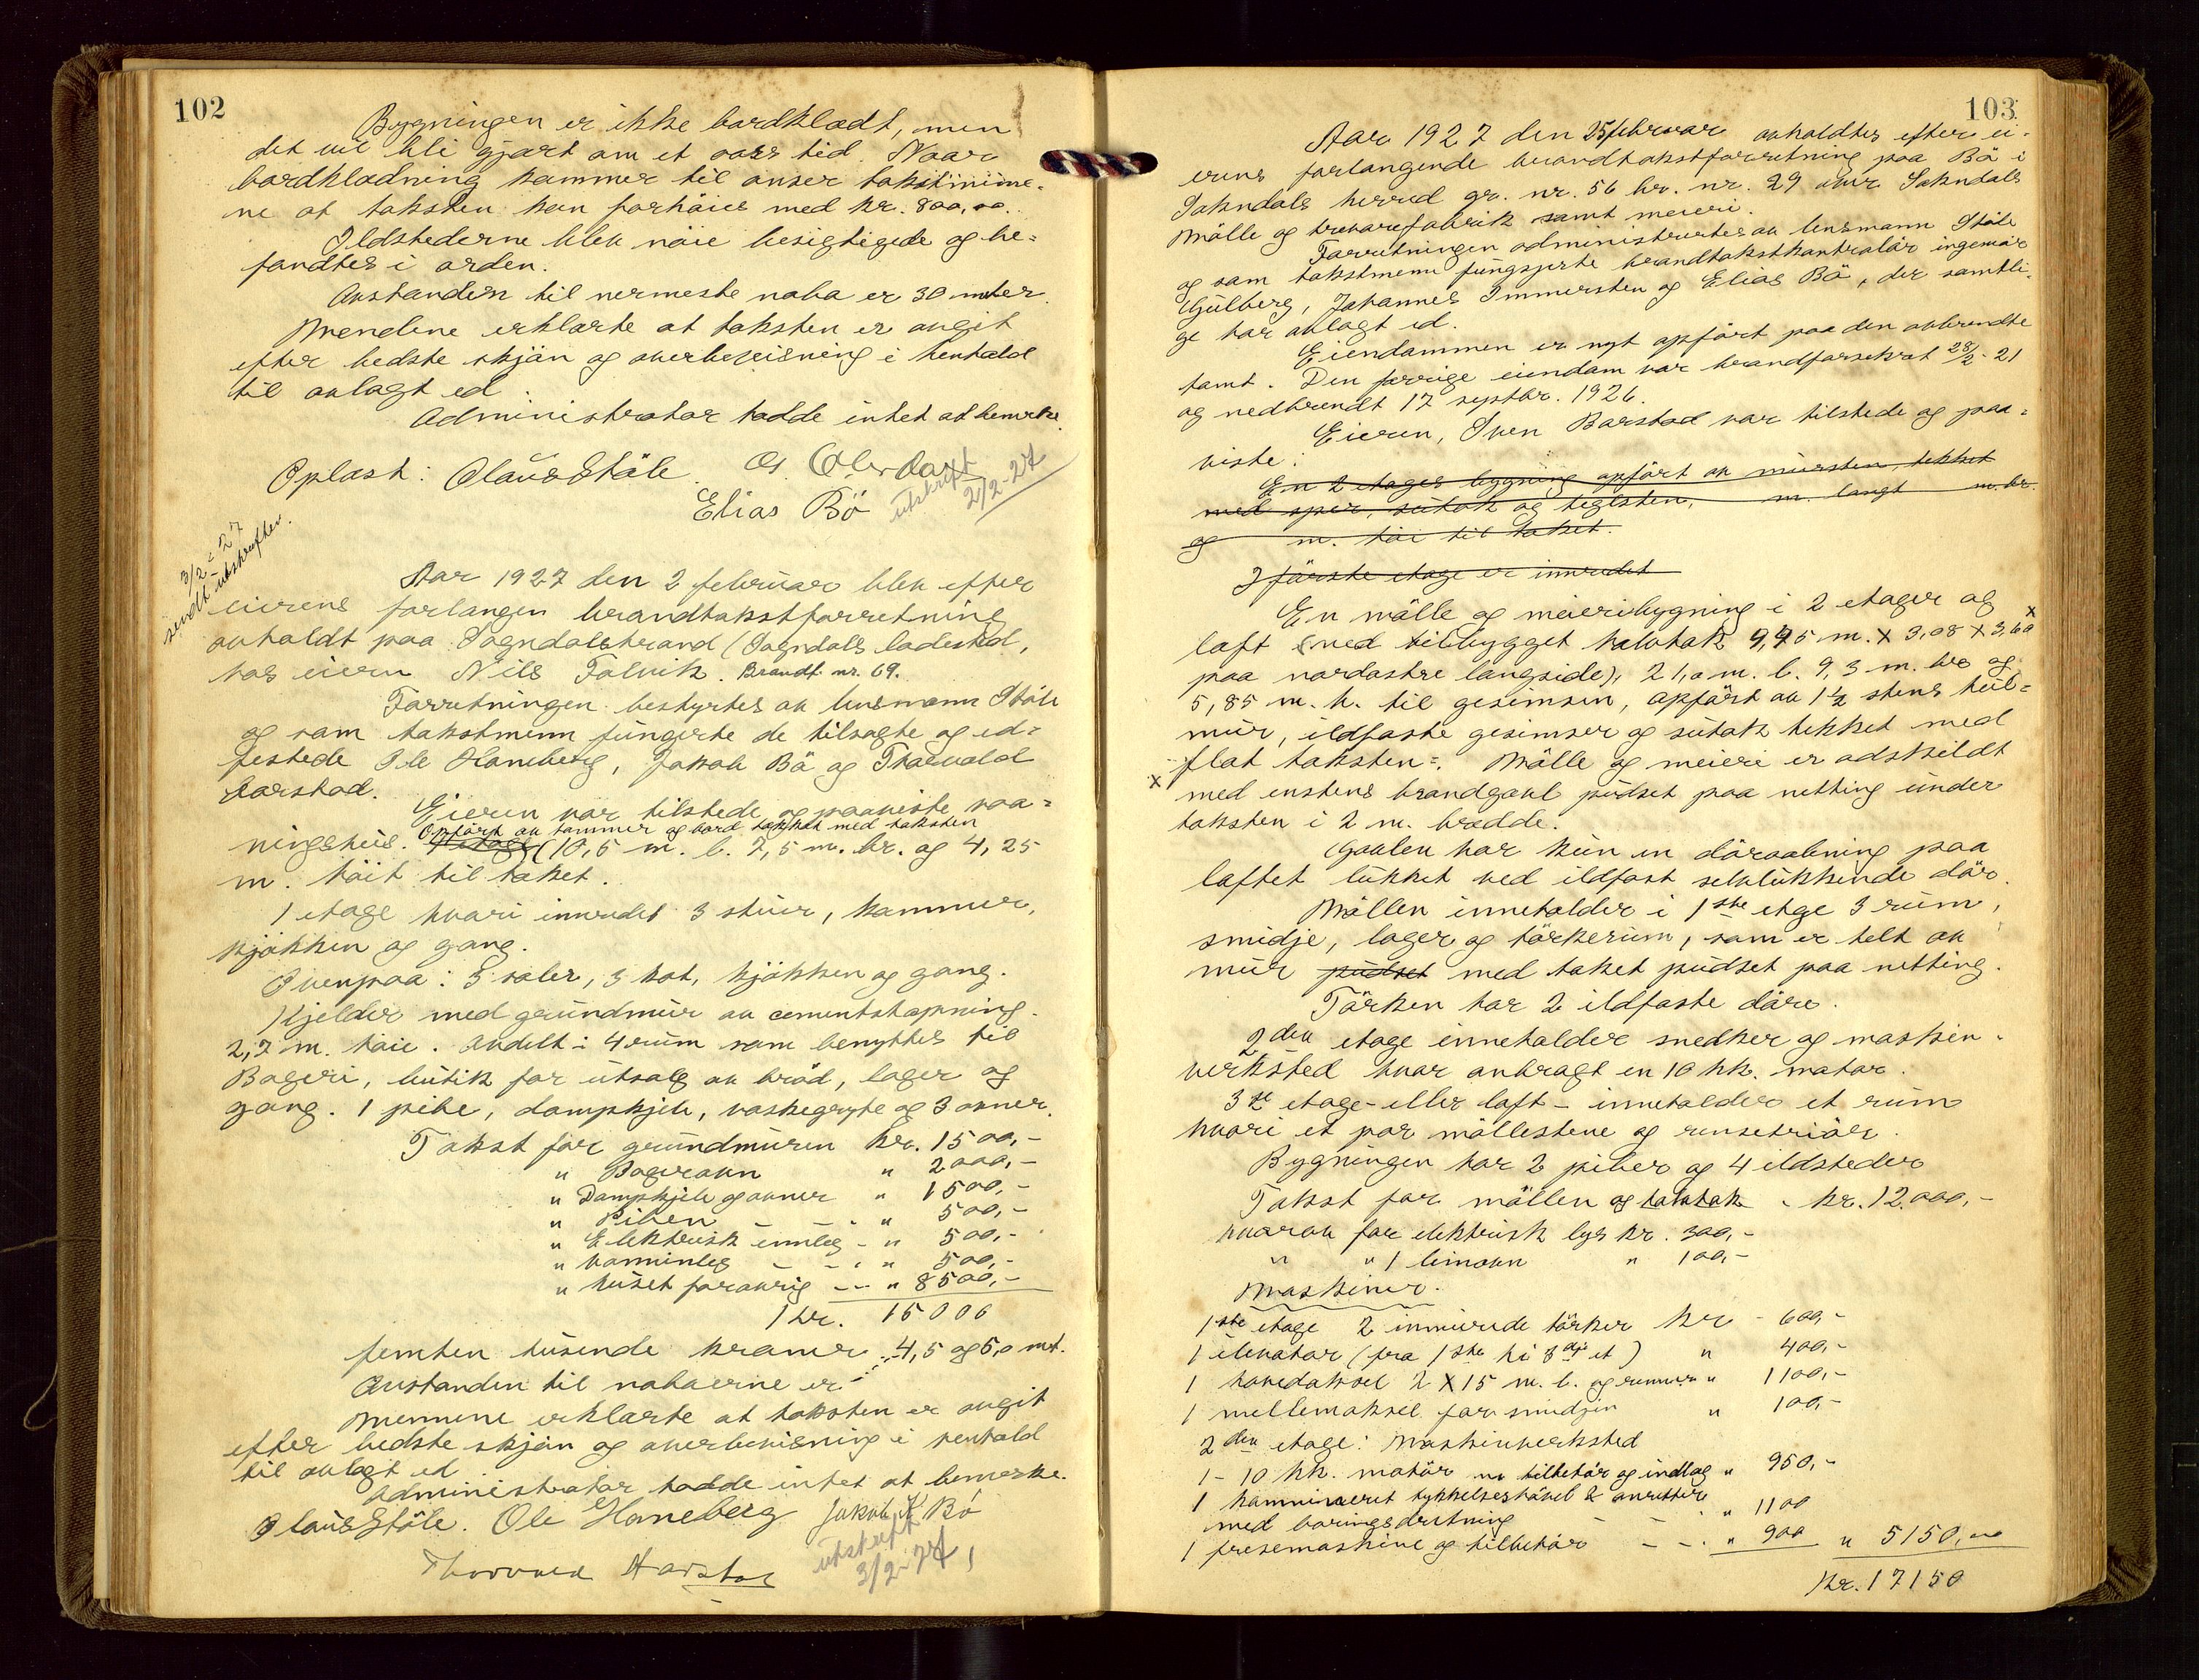 102
Bygningen er ikke bordklædt, men
det vil bli gjort om et aars tid. Naar
bordklædning kommer til anser takstmime-
ne at taksten kan forhøies med kr. 800,00.
Ildstederne blev nøie besigtigede og be-
fandtes i orden.
Avstanden til nermeste nabo er 30 meter.
Mendene erklærte at taksten er avgit
efter bedste skjøn og overbevisning i henhold
til avlagt ed.
Administrator hadde intet at bemerke.
Oplæst: Olaus Støle.
Elias Bö
utskrift
2/2-27
3/2-27
sendt utskrifter.
Aar 1927 den 2 februar blev efter
eierens forlangen brandtakstforretning
avholdt paa Sogndalstrand (Sogndals ladested,
hos eieren Nils Tolvik. Brandt. nr. 69.
Forretningen bestyrtes av lensmann Støle
og som takstmenn fungerte de tilsagte og ed-
festede Ole Haneberg, Jakob Bö og Thorvald
Aarstad.
Eieren var tilstede og paaviste vaa-
Opført av tømmer og bord tekket med taksten
ningshus. (10,5 m. l. 7,5 m. br. og 4,25
m. høit til taket.
1 etage hvori innredet 3 stuer, kammer,
kjøkken og gang.
Ovenpaa: 3 saler, 3 kot, kjøkken og gang.
Kjelder med grundmur av cementstøpning.
2,7 m. høie. Avdelt i 4 rum som benyttes til
Bageri, butik for utsalg av brød, lager og
gang. 1 pibe, dampkjele, vaskegryte og 3 ovner.
Takst for grundmuren kr. 1500,-
" Bagerovn " 2000,-
" Dampkjele og ovner " 1500,-
" Piben - - " 500,-
" Elektrisk innleg - " 500,-
" Vanninleg - - " 500,-
" huset forøvrig -- " 8500,-
Kr. 15000
femten tusende kroner
Avstanden til naboerne er 4,5 og 5,0 mt.
Mennene erklærte at taksten er avgit
efter bedste skjøn og overbevisning i henhold
til avlagt ed
Administrator hadde intet at bemerke.
Olaus Støle. Ole Haneberg Jakob K Bö
utskrift
3/2-27
Thorvald Aarstad
103
Aar 1927 den 25 februar avholdtes efter ei-
erens forlangende brandtakstforretning paa Bö i
Sokndals herred gr. nr. 56 br. nr. 29 over Sokndals
Mølle og trevarefabrik samt meieri.
Forretningen administrertes av lensmann Støle
og som takstmenn fungerte brandtakstkontrolør ingeniør
Gulberg, Johannes Immersten og Elias Bö, der samtli-
ge har avlagt ed.
Eiendommen er nyt opført paa den avbrendte
tomt. Den forrige eiendom var brandforsikret 28/2-21
og nedbrendt 17 septbr. 1926.
Eieren, Sven Barstad var tilstede og paa-
viste:
En 2 etages bygning opført av mursten, tekket
med sper, sutak og teglsten, m. langt m. br.
og m. høi til taket.
I første etage er innredet
En mølle og meieribygning i 2 etager og
loft (med tilbygget halvtak 9,95 m. X 3,08 X 3,60 x
paa nordøstre langside), 21,0 m. l. 9,3 m. br og
5,85 m. h. til gesimsen, opført av 1½ stens hul-
mur, ildfaste gesimser og sutak tekket med
flat taksten. Mølle og meieri er adskildt
x med enstens brandgavl pudset paa netting under
taksten i 2 m. bredde.
Gavlen har kun en døraabning paa
loftet lukket ved ildfast selvlukkende dør.
Møllen inneholder i 1ste etge 3 rum,
smidje, lager og tørkerum, som er helt av
mur pudset med taket pudset paa netting.
Tørken har 2 ildfaste døre.
2den etage inneholder snedker og maskin-
verksted hvor anbragt en 10 hk. motor.
3je etage - eller loft - inneholder et rum
hvori et par møllestene og rensetriør.
Bygningen har 2 piber og 4 ildsteder
Takst for møllen og halvtak . kr. 12.000,-
hvorav for elektrisk lys kr. 300,-
" " 1 limovn " 100,-
Maskiner.
1ste etage 2 innmurede tørker kr - 600,-
1 elevator (fra 1ste til 3dje et) " 400,-
1 hovedaksel 2 X 15 m. l. og remmer " 1100,-
1 mellemaksel for smidjen " 100,-
2den etage: Maskinverksted
1- 10 hk. motor m tilbehør og indlag " 950,-
1 kombineret tykkelseshøvel & avretter
med boringsdretning " 1100
1 fresemaskine og tilbehør - - . " 900 " 5150,00
Kr. 17150